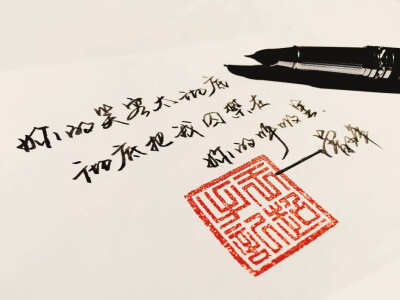 你的笑容太彻底
彻底把我囚禁在
你的呼吸里